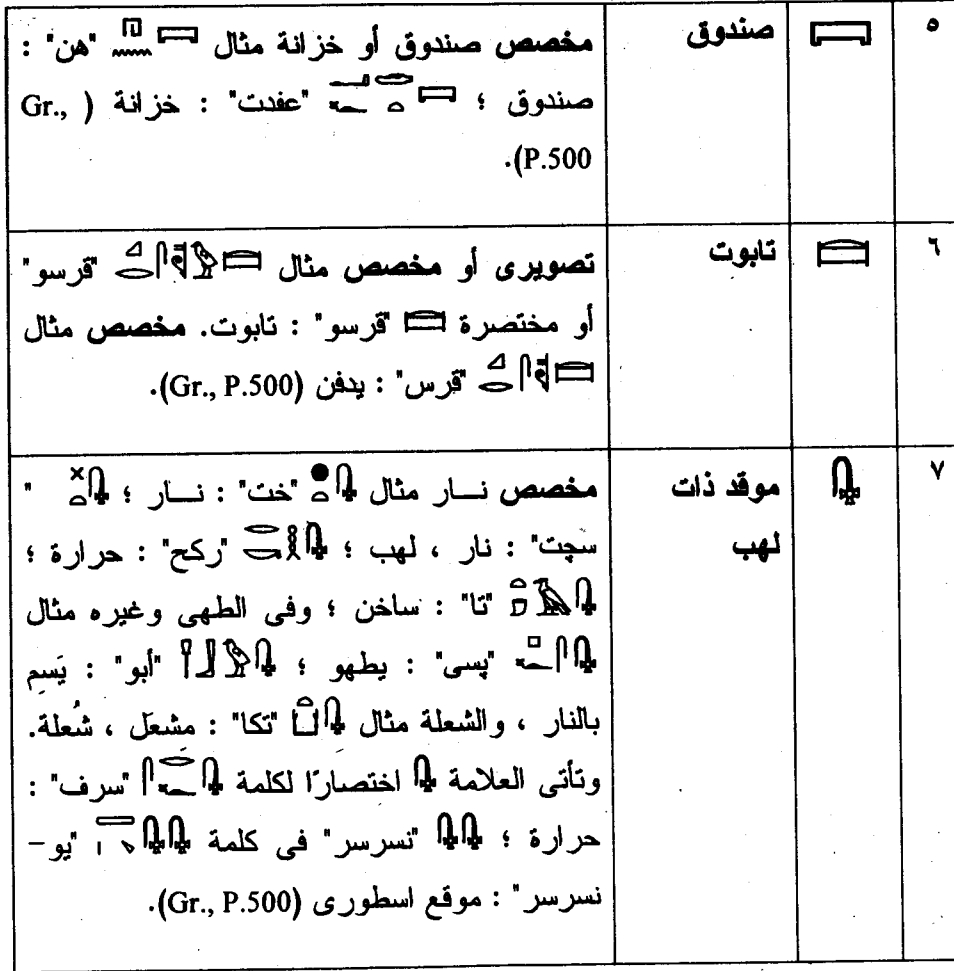 ٥ صندوق مخصص صندوق أو خزانة مثال "هن" :
صندوق ؛ "عفدت" : خزانة ( Gr.,
P.500).
٦ تابوت تصويرى أو مخصص مثال "قرسو"
أو مختصرة "قرسو" : تابوت. مخصص مثال
"قرس" : يدفن (Gr., P.500).
٧ موقد ذات مخصص نــار مثال "خت" : نــار ؛ "
لهب سچت" : نار ، لهب ؛ "ركح" : حرارة ؛
"تا" : ساخن ؛ وفى الطهى وغيره مثال
"پسى" : يطهو ؛ "أبو" : يَسِم
بالنار ، والشعلة مثال "تكا" : مشعل ، شُعلة.
وتأتى العلامة اختصارًا لكلمة "سرف" :
حرارة ؛ "نسرسر" فى كلمة "يو-
نسرسر" : موقع اسطورى (Gr., P.500).